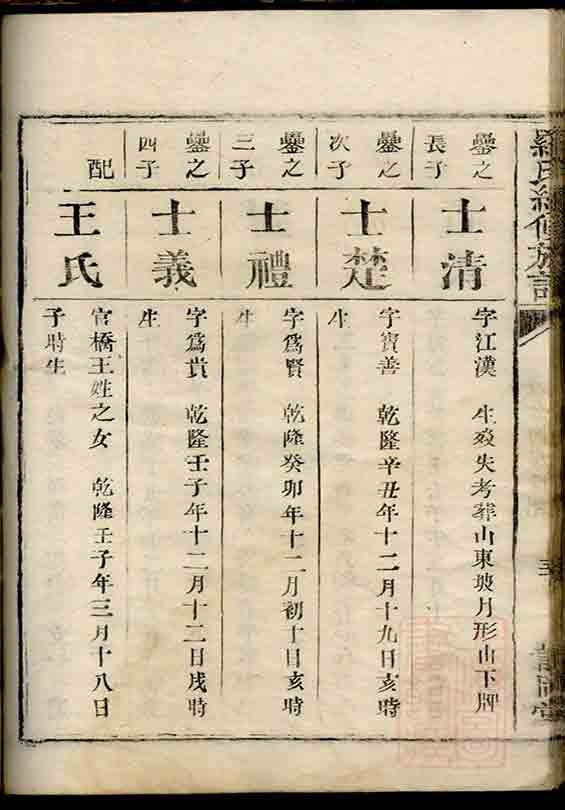 羅氏續修族譜
鑾之
長子
士清
字江漢 生歿失考葬山東坡月形山下牌
鑾之
次子
士楚
字寶善 乾隆辛丑年十二月十九日亥時
生
鑾之
三子
士禮
字爲賢 乾隆癸卯年十二月初十日亥時
生
鑾之
四子
士義
字爲貴 乾隆壬子年十二月十二日戌時
生
配
王氏
官橋王姓之女 乾隆壬子年三月十八日
子時生